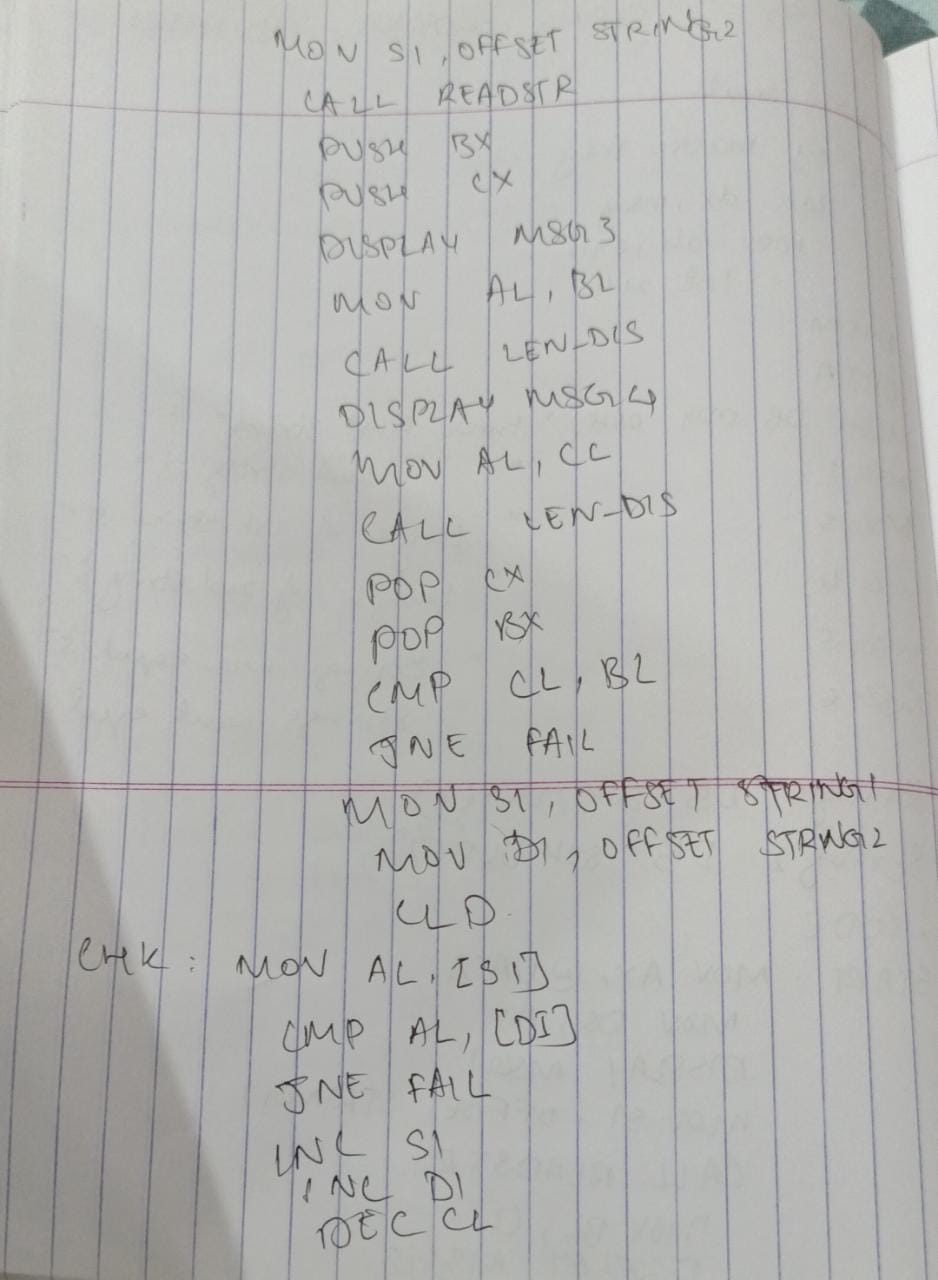 MOV SI, OFFSET STRING2
CALL READSTR
PUSH BX
PUSH CX
DISPLAY MSG3
MOV AL, BL
CALL LEN-DIS
DISPLAY MSG4
MOV AL, CL
CALL LEN-DIS
POP CX
POP BX
CMP CL, BL
JNE FAIL
MOV SI, OFFSET STRING1
MOV DI, OFFSET STRING2
CLD
CHK: MOV AL, [SI]
CMP AL, [DI]
JNE FAIL
INC SI
INC DI
DEC CL